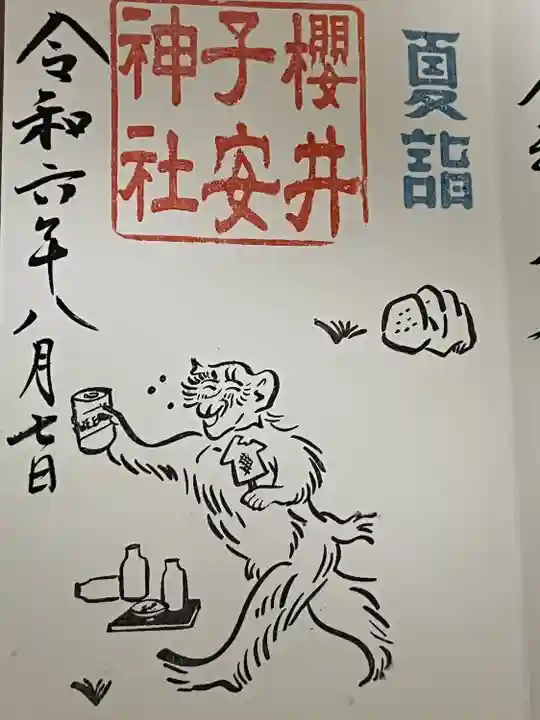 夏詣
櫻井
子安
神社
令和六年八月七日
BEER